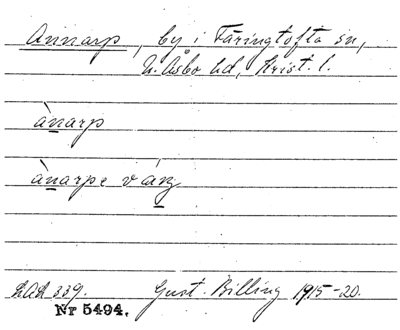 Annarp, by i Färingtofta sn,
N. Åsbo hd, Krist. l.
ànarp
ànarpe v áŋ
LAL 339. Gust. Billing 1915-20.
Nr 5494.